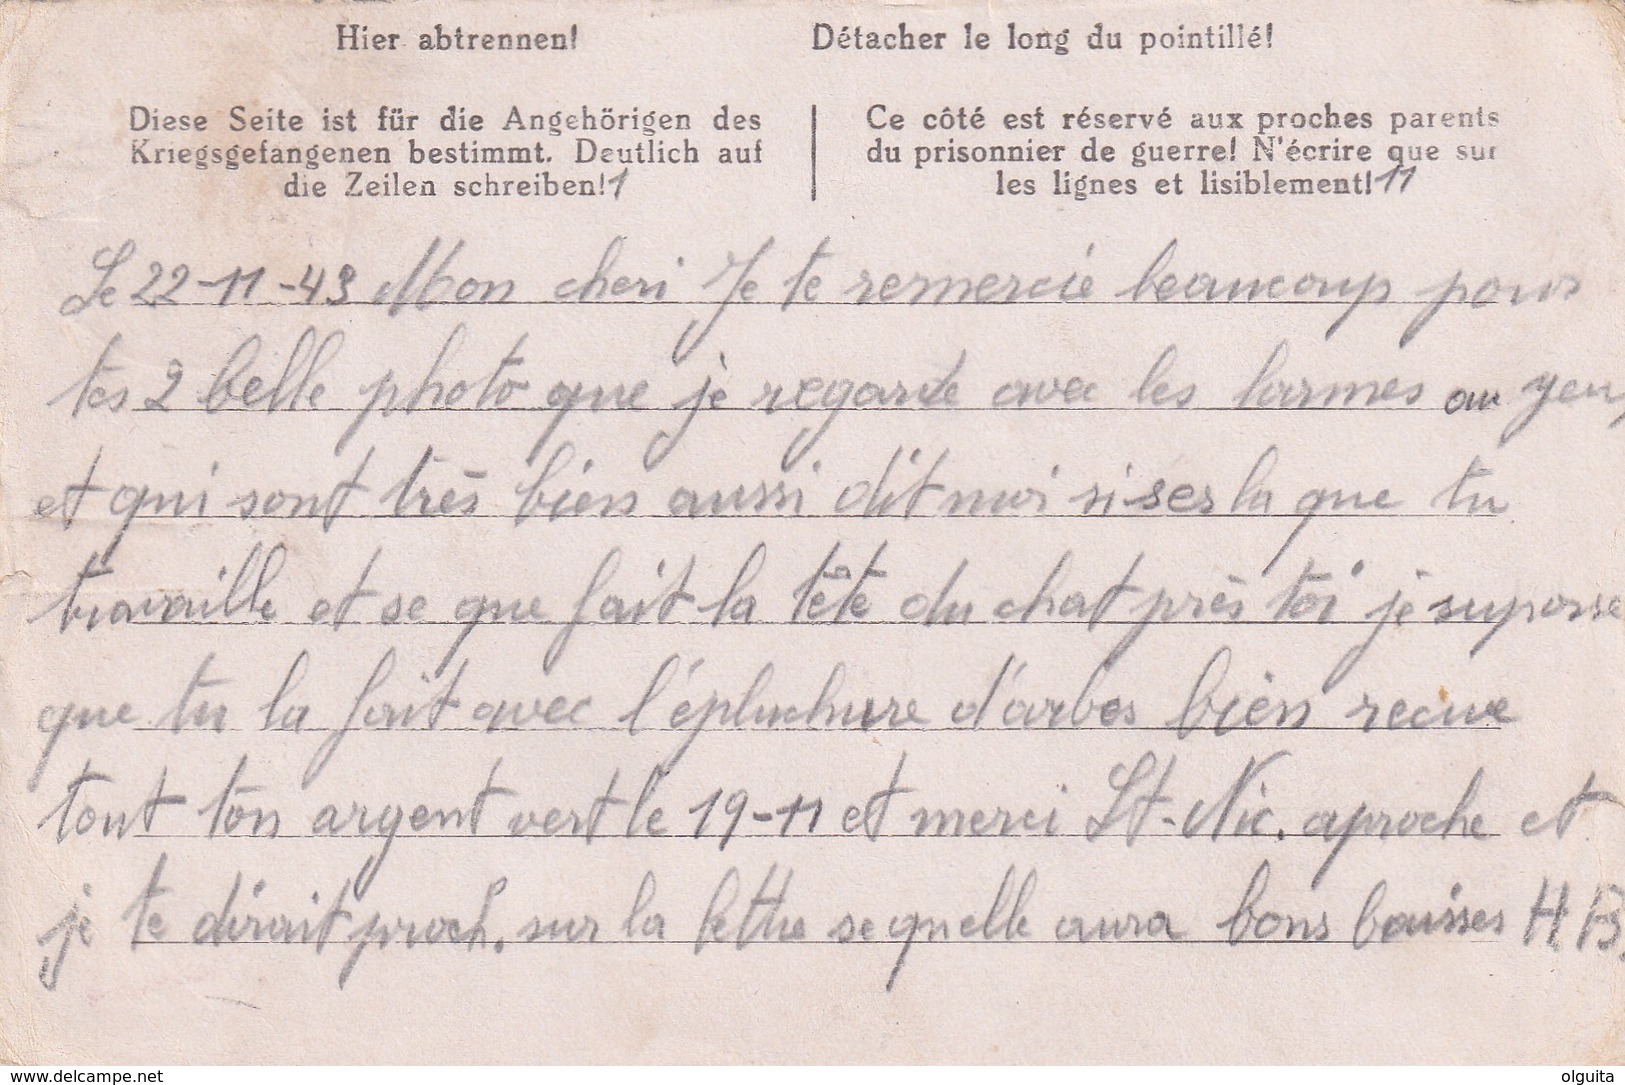 Hier abtrennen!
Détacher le long du pointillé!
Diese Seite ist für die Angehörigen des
Kriegsgefangenen bestimmt. Deutlich auf
die Zeilen schreiben! 1
Ce côté est réservé aux proches parents
du prisonnier de guerre! N'écrire que sur
les lignes et lisiblement! 11
Le 22-11-43 Mon cheri Je te remercie beaucoup pour
tes 2 belle photo que je regarde avec les larmes au yeux
et qui sont très bien aussi dit moi si ses la que tu
travaille et se que fait la tête du chat près toi je suposse
que tu la fait avec l'épluchure d'arbes bien recue
tout ton argent vert le 19-11 et merci St-Nic. aproche et
je te dirait proch. sur la lettre se quelle aura bons baisses H B.
olguita